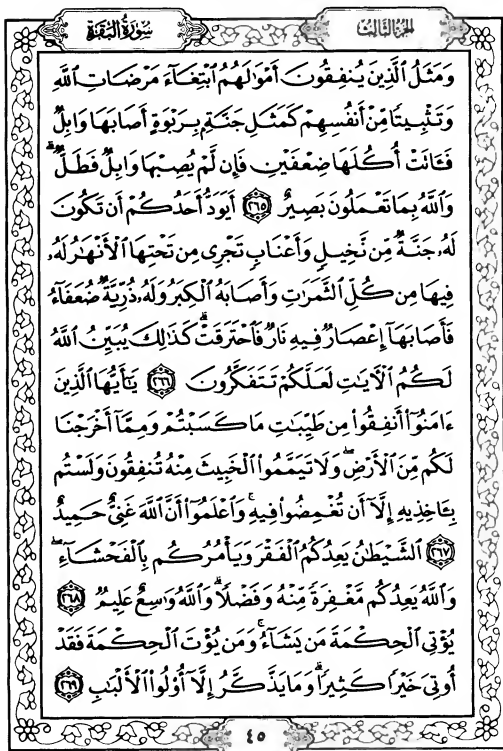 سُورَةُ البَقَرَةِ
الجزء الثالث
وَمَثَلُ الَّذِينَ يُنفِقُونَ أَمْوَالَهُمُ ابْتِغَاءَ مَرْضَاتِ اللَّهِ
وَتَثْبِيتًا مِّنْ أَنفُسِهِمْ كَمَثَلِ جَنَّةٍ بِرَبْوَةٍ أَصَابَهَا وَابِلٌ
فَـَٔاتَتْ أُكُلَهَا ضِعْفَيْنِ فَإِن لَّمْ يُصِبْهَا وَابِلٌ فَطَلٌّ ۗ
وَاللَّهُ بِمَا تَعْمَلُونَ بَصِيرٌ ٢٦٥ أَيَوَدُّ أَحَدُكُمْ أَن تَكُونَ
لَهُۥ جَنَّةٌ مِّن نَّخِيلٍ وَأَعْنَابٍ تَجْرِى مِن تَحْتِهَا الْأَنْهَـٰرُ لَهُۥ
فِيهَا مِن كُلِّ الثَّمَرَٰتِ وَأَصَابَهُ الْكِبَرُ وَلَهُۥ ذُرِّيَّةٌ ضُعَفَآءُ
فَأَصَابَهَآ إِعْصَارٌ فِيهِ نَارٌ فَاحْتَرَقَتْ ۗ كَذَٰلِكَ يُبَيِّنُ اللَّهُ
لَكُمُ الْـَٔايَـٰتِ لَعَلَّكُمْ تَتَفَكَّرُونَ ٢٦٦ يَـٰٓأَيُّهَا الَّذِينَ
ءَامَنُوٓا أَنفِقُوا مِن طَيِّبَـٰتِ مَا كَسَبْتُمْ وَمِمَّآ أَخْرَجْنَا
لَكُم مِّنَ الْأَرْضِ ۖ وَلَا تَيَمَّمُوا الْخَبِيثَ مِنْهُ تُنفِقُونَ وَلَسْتُم
بِـَٔاخِذِيهِ إِلَّآ أَن تُغْمِضُوا فِيهِ ۚ وَاعْلَمُوٓا أَنَّ اللَّهَ غَنِىٌّ حَمِيدٌ
٢٦٧ الشَّيْطَـٰنُ يَعِدُكُمُ الْفَقْرَ وَيَأْمُرُكُم بِالْفَحْشَآءِ ۖ
وَاللَّهُ يَعِدُكُم مَّغْفِرَةً مِّنْهُ وَفَضْلًا ۗ وَاللَّهُ وَٰسِعٌ عَلِيمٌ ٢٦٨
يُؤْتِى الْحِكْمَةَ مَن يَشَآءُ ۚ وَمَن يُؤْتَ الْحِكْمَةَ فَقَدْ
أُوتِىَ خَيْرًا كَثِيرًا ۗ وَمَا يَذَّكَّرُ إِلَّآ أُولُوا الْأَلْبَـٰبِ ٢٦٩
٤٥